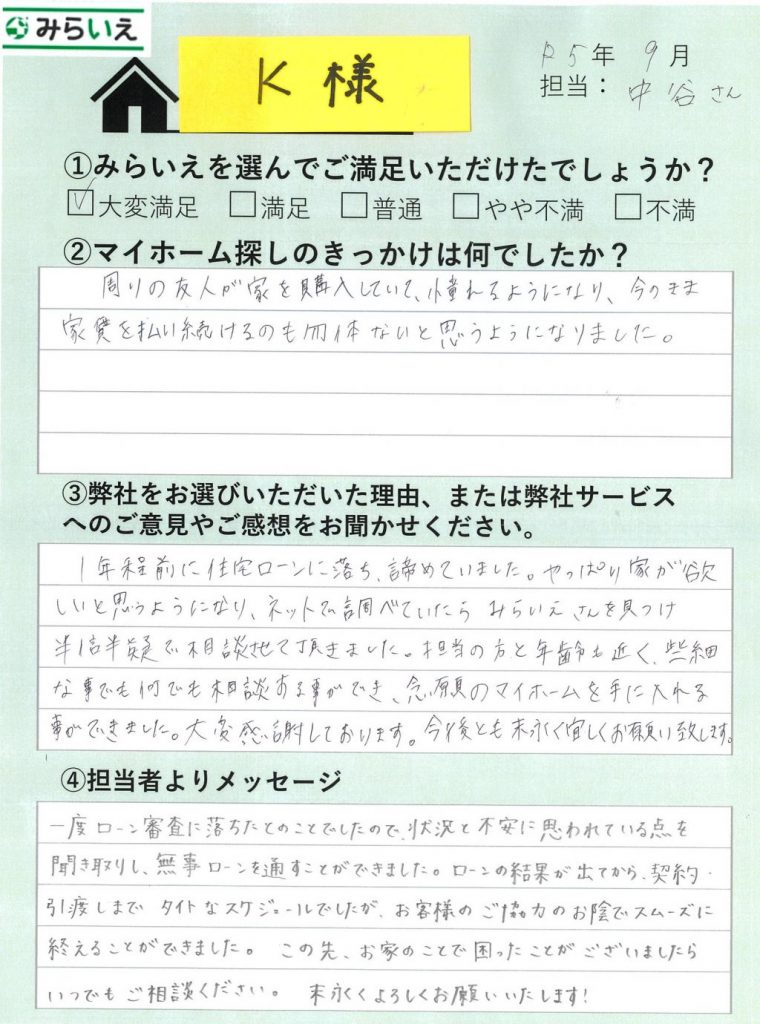 みらいえ
K 様
R5年 9月
担当：中谷さん
①みらいえを選んでご満足いただけたでしょうか？
☑大変満足 □満足 □普通 □やや不満 □不満
②マイホーム探しのきっかけは何でしたか？
周りの友人が家を購入していて、憧れるようになり、今のまま
家賃を払い続けるのも勿体ないと思うようになりました。
③弊社をお選びいただいた理由、または弊社サービス
へのご意見やご感想をお聞かせください。
1年程前に住宅ローンに落ち、諦めていました。やっぱり家が欲
しいと思うようになり、ネットで調べていたら みらいえさんを見つけ
半信半疑で相談させて頂きました。担当の方と年齢も近く、些細
な事でも何でも相談する事ができ、念願のマイホームを手に入れる
事ができました。大変感謝しております。今後とも末永く宜しくお願い致します。
④担当者よりメッセージ
一度ローン審査に落ちたとのことでしたので、状況と不安に思われている点を
聞き取りし、無事ローンを通すことができました。ローンの結果が出てから、契約・
引渡しまで タイトなスケジュールでしたが、お客様のご協力のお陰でスムーズに
終えることができました。 この先、お家のことで困ったことがございましたら
いつでもご相談ください。 末永くよろしくお願いいたします！